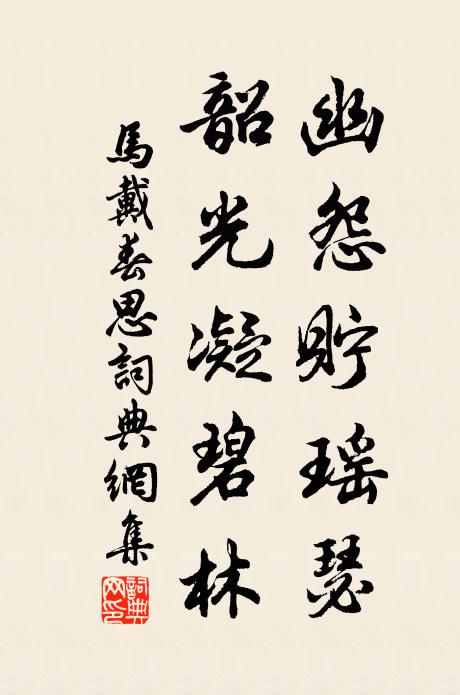 幽怨貯瑤瑟
韶光凝碧林
馬戴春思詞典網集
詞典網印